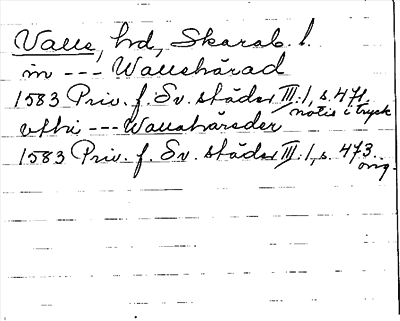 Valle, hd, Skarab. l.
in --- Wallshärad
1583 Priv. f. Sv. städer III:1, s. 471
notis i tryck
vthi --- Wallahäreder
1583 Priv. f. Sv. städer III:1, s. 473
orig.